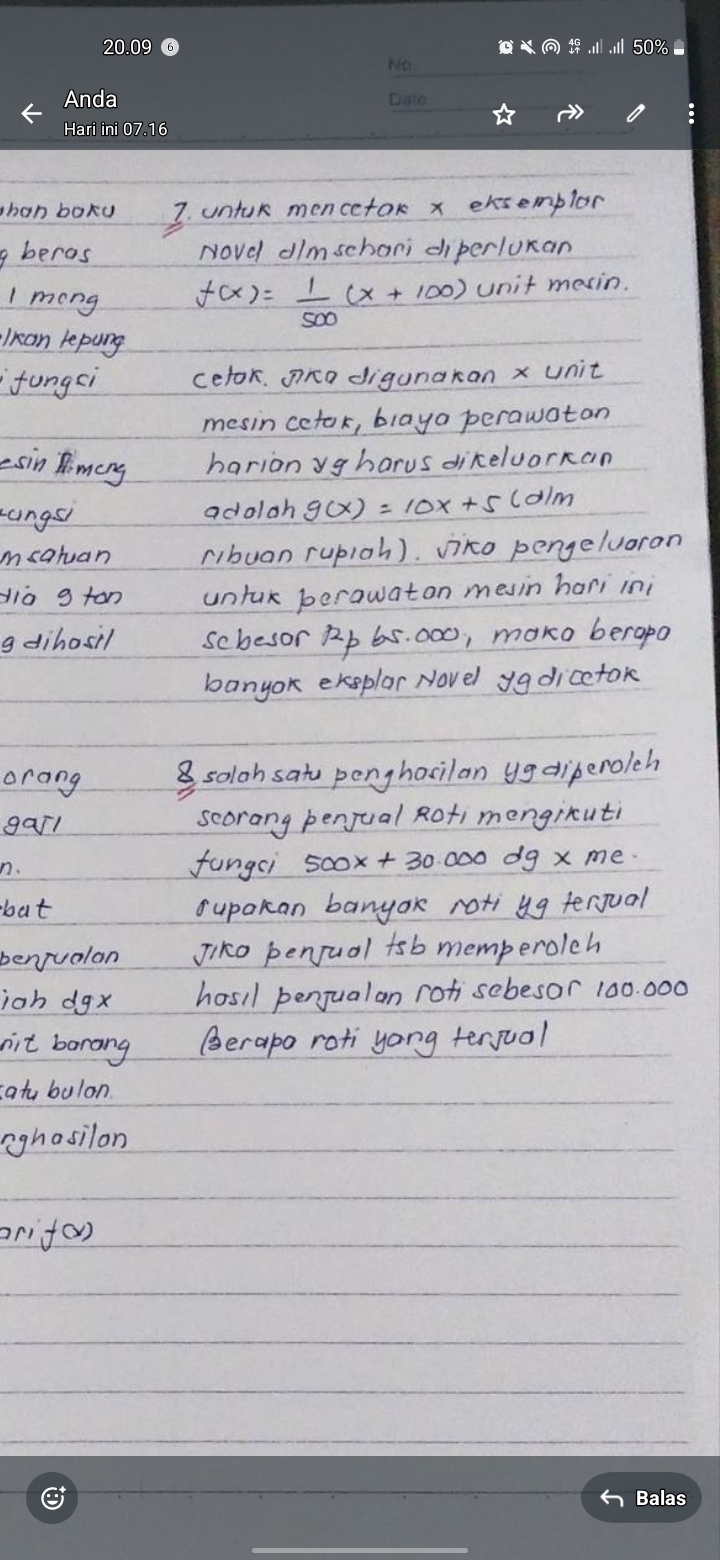 20.09 6 4G 50%
Anda
Hari ini 07.16
No.
Date
ahan baku
g beras
1 meng
lkan tepung
i fungsi
esin II meng
fungsi
m satuan
dia 9 ton
g dihasil
orang
gaji
n.
bat
penjualan
iah dgx
nit barang
satu bulan.
nghasilan
ari f(x)
7. untuk mencetak x eksemplar
Novel dlm sehari diperlukan
f(x) = 1/500 (x + 100) unit mesin.
cetak. Jika digunakan x unit
mesin cetak, biaya perawatan
harian yg harus dikeluarkan
adalah g(x) = 10x + 5 (dlm
ribuan rupiah). Jika pengeluaran
untuk perawatan mesin hari ini
sebesar Rp 65.000, maka berapa
banyak eksplar Novel yg dicetak
8 salah satu penghasilan yg diperoleh
seorang penjual Roti mengikuti
fungsi 500x + 30.000 dg x me-
rupakan banyak roti yg terjual
Jika penjual tsb memperoleh
hasil penjualan roti sebesar 100.000
Berapa roti yang terjual
Balas